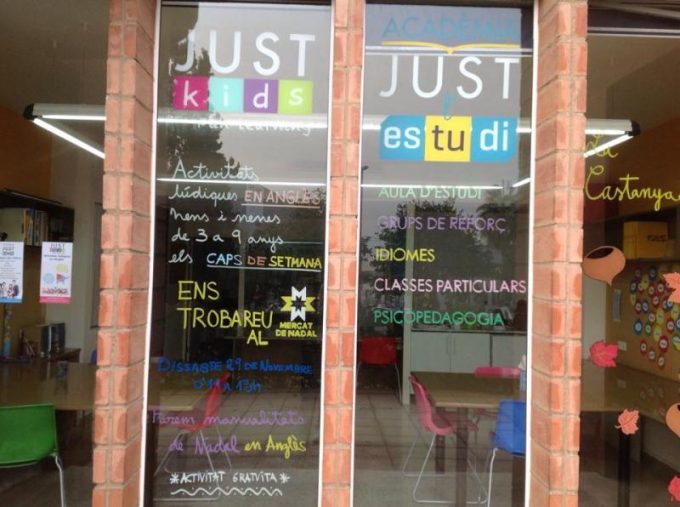 JUST
kids
Learning
Activitats
lúdiques EN ANGLÈS
nens i nenes
de 3 a 9 anys
els CAPS DE SETMANA
ENS
TROBAREU
AL
MERCAT
DE NADAL
DISSABTE 29 DE NOVEMBRE
D'11 A 13h
Farem manualitats
de Nadal en Anglès
*ACTIVITAT GRATUÏTA*
ACADÈMIA
JUST
estudi
AULA D'ESTUDI
GRUPS DE REFORÇ
IDIOMES
CLASSES PARTICULARS
PSICOPEDAGOGIA
La
Castanya
JUST
JUST